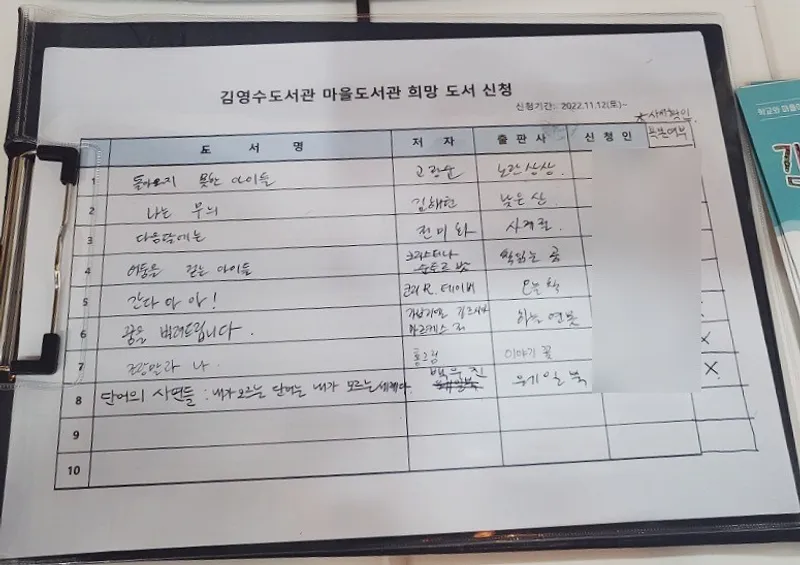 김영수도서관 마을도서관 희망 도서 신청
신청기간: 2022.11.12(토)~
도 서 명 저 자 출 판 사 신 청 인
1 돌아오지 못한 아이들 노란 상상.
2 나는 무늬 김해원 낮은 산.
3 다음달에는 전미화 사계절.
4 어둠을 걷는 아이들 크리스티나 순토르밧 책읽는 곰
5 간다아아! 코리 R. 테이버 오늘책
6 꿈을 빌려드립니다. 하늘 연못
7 조랑말과 나. 홍그림 이야기 꽃
8 단어의 사연들 : 내가 모르는 단어는 내가 모르는 세계다. 백우진 웨일북
9
10
X
X.